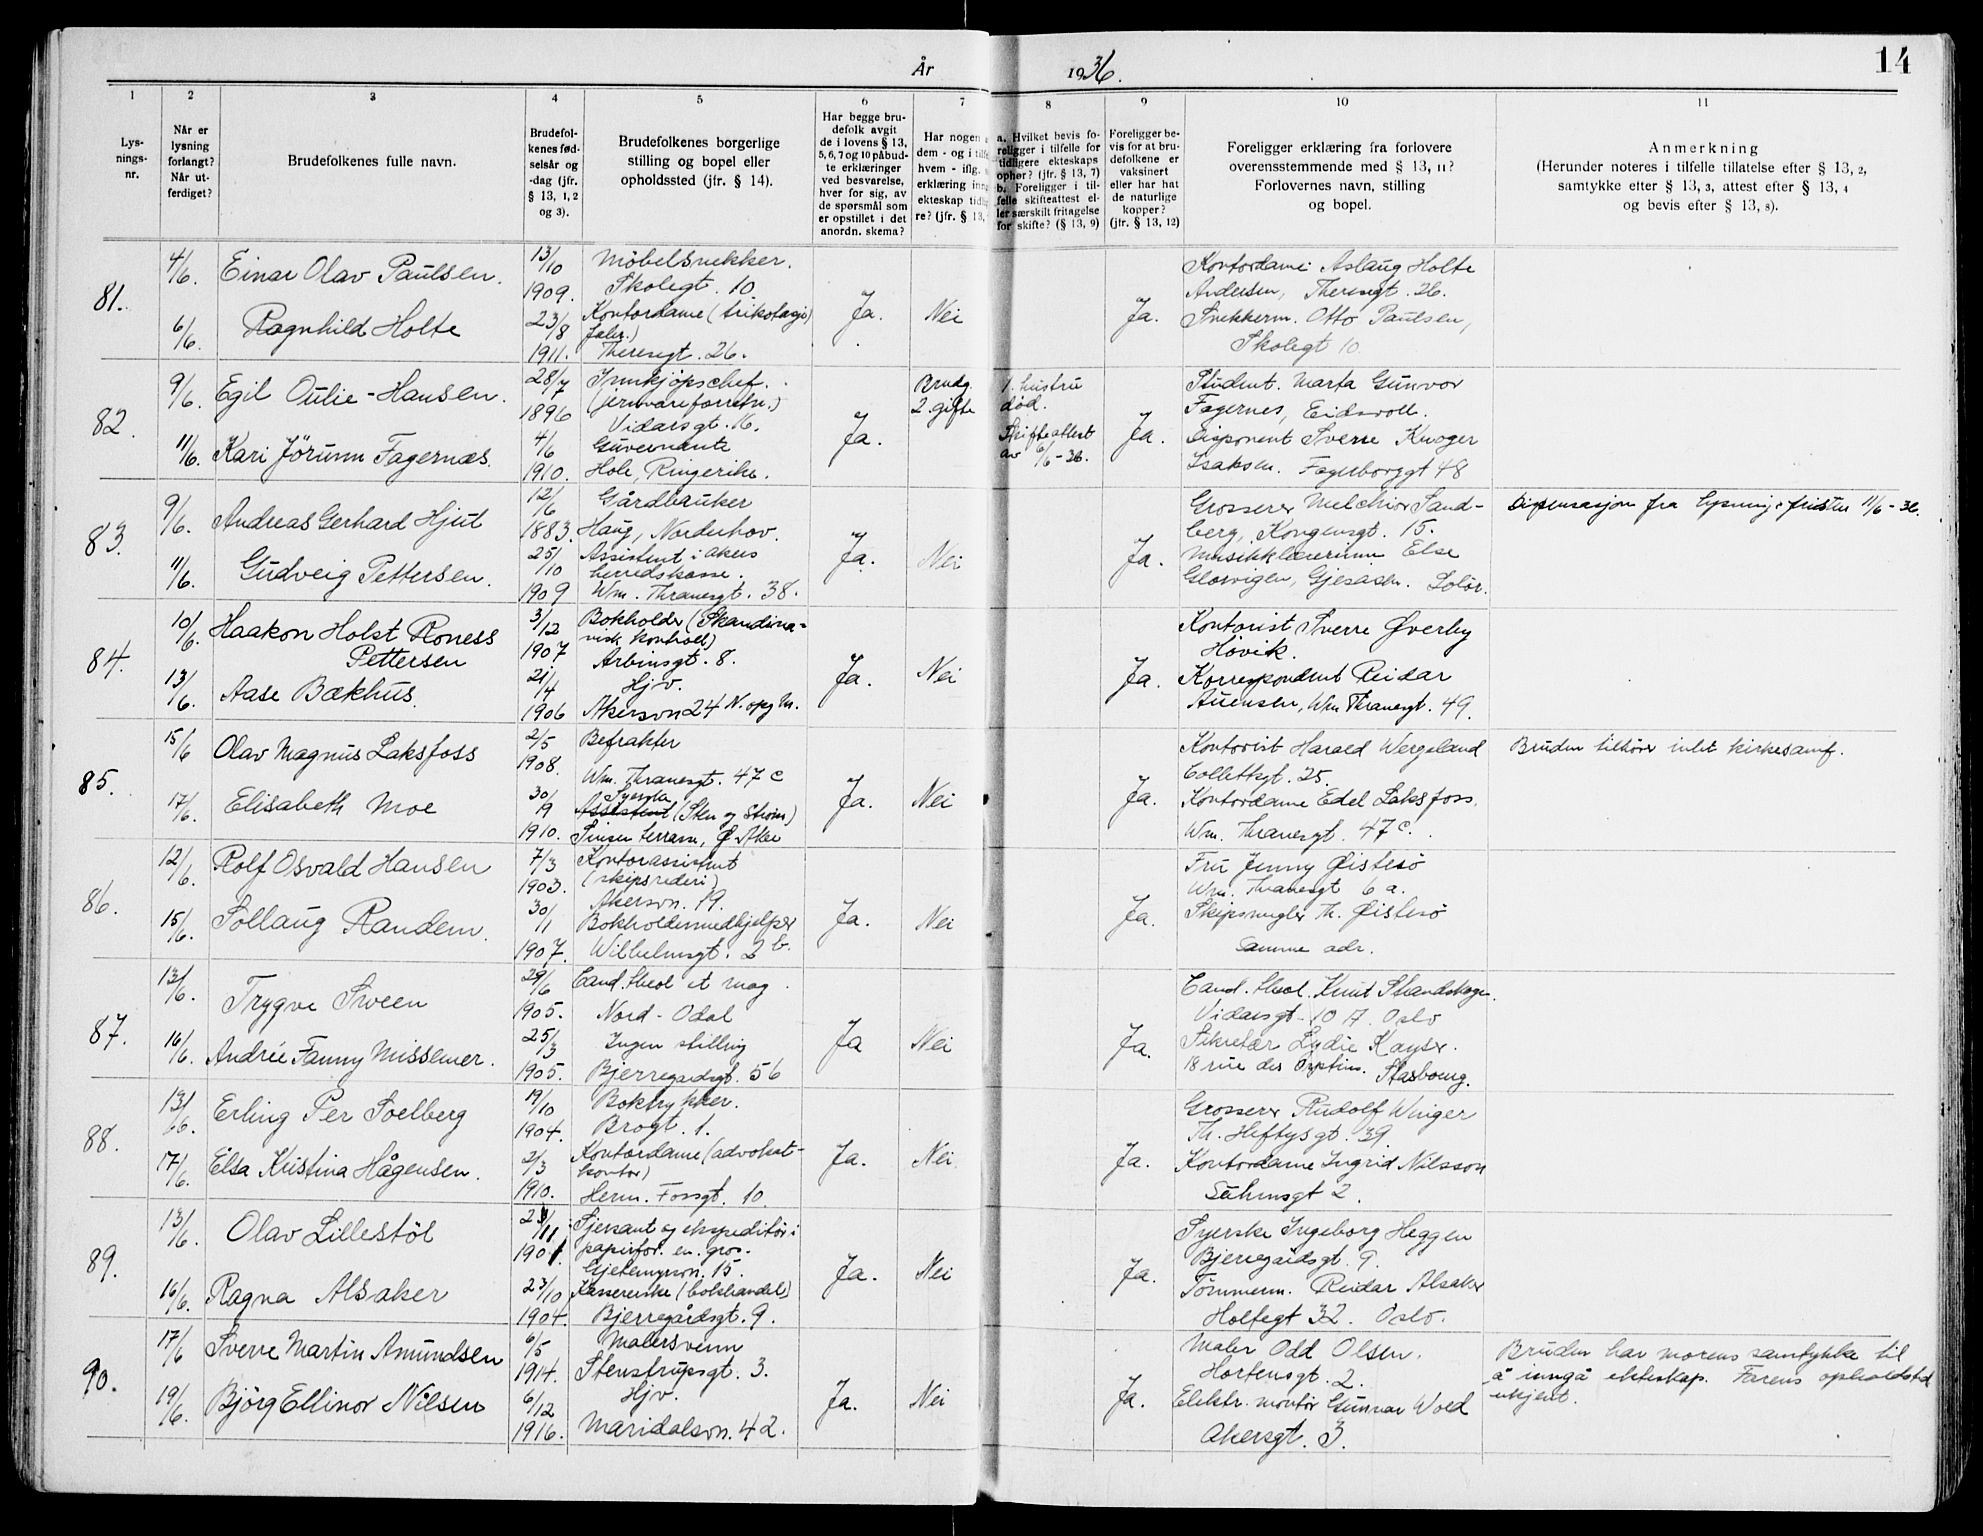 År 1936.
14
1 2 3 4 5 6 7 8 9 10 11
Lysnings-nr.
Når er lysning forlangt? Når utferdiget?
Brudefolkenes fulle navn.
Brudefolkenes fødselsår og -dag (jfr. § 13, 1, 2 og 3).
Brudefolkenes borgerlige stilling og bopel eller opholdssted (jfr. § 14).
Har begge brudefolk avgitt de i lovens § 13, 5, 6, 7 og 10 påbudte erklæringer ved besvarelse, hver for sig, av de spørsmål som er opstillet i det anordn. skema?
Har nogen a
dem - og i tilfe
hvem - iflg.
erklæring inng
ekteskap tidlig
re? (jfr. § 13,
a. Hvilket bevis foreligger i tilfelle for tidligere ekteskaps ophør? (jfr. § 13, 7)
b. Foreligger i tilfelle skifteattest eller særskilt fritagelse for skifte? (§ 13, 9)
Foreligger bevis for at brudefolkene er vaksinert eller har hat de naturlige kopper? (jfr. § 13, 12)
Foreligger erklæring fra forlovere overensstemmende med § 13, 11? Forlovernes navn, stilling og bopel.
Anmerkning
(Herunder noteres i tilfelle tillatelse efter § 13, 2, samtykke efter § 13, 3, attest efter § 13, 4 og bevis efter § 13, 8).
81.
4/6. Einar Olav Paulsen. 13/10 1909. Möbelsnekker. Skolegt. 10
6/6. Ragnhild Holte 23/8 1911. Kontordame (trikotasje fabr.) Theresgt. 26.
Ja. Nei Ja.
Kontordame Aslaug Holte
Andersen, Theresgt. 26.
Snekkerm. Otto Paulsen,
Skolegt 10
82.
9/6. Egil Oulie-Hansen. 28/7 1896 Innkjöpschef. (jernvareforretn.) Vidarsgt. 16.
11/6. Kari Jörunn Fagernæs. 4/6 1910. Guvernante Hole, Ringerike.
Ja. Brudg. 2. gifte
1. hustru død.
Skifteattest av 6/6-36.
Ja.
Student. Marta Gunvor
Fagernes, Eidsvoll.
Disponent Sverre Kroger
Isaksen. Fagerborggt 48
83.
9/6. Andreas Gerhard Hjul 12/6 1883. Gårdbruker Haug, Norderhov.
11/6. Gudveig Pettersen. 25/10 1909 Assistent i Akers herredskasse. Wm. Thranesgt. 38.
Ja. Nei Ja.
Grosserer Melchior Sand-
berg, Kongensgt. 15.
Musikklærerinne Else
Glorvigen, Gjesåsen. Solör.
Dispensasjon fra lysningsfristen 11/6-36.
84.
10/6. Haakon Holst Roness Pettersen 3/12 1907 Bokholder (Skandina-visk kontroll) Arbinsgt. 8.
13/6. Aase Bækhus. 21/4 1906 Hjv. Akersvn 24 N. opg M.
Ja. Nei Ja.
Kontorist Sverre Øverby
Hövik.
Korrespondent Reidar
Auensen, Wm Thranesgt. 49.
85.
15/6 Olav Magnus Laksfoss 2/5 1908. Befrakter Wm. Thranesgt. 47 c
17/6. Elisabeth Moe 30/9 1910. Syerske Assistent (Sten og Ström) Sinsen terrasse, Ø. Aker
Ja. Nei Ja.
Kontorist Harald Wergeland
Collettsgt. 25.
Kontordame Edel Laksfoss.
Wm. Thranesgt. 47 c.
Bruden tilhörer intet kirkesamf.
86.
12/6. Rolf Osvald Hansen 7/3 1903. Kontorassistent (skipsrederi) Akersvn. 19.
15/6. Sollaug Randem. 30/1 1907. Bokholdermedhjelper Wilhelmsgt. 2 b.
Ja. Nei Ja.
Fru Jenny Øistesö
Wm. Thranesgt 6 a.
Skipsmegler Th. Øistesö
samme adr.
87.
13/6. Trygve Sween 29/6 1905. Cand. theol et mag. Nord-Odal
16/6. Andrée Fanny Missemer. 25/3 1905. Ingen stilling Bjerregaardsgt. 56
Ja Nei Ja.
Cand. theol. Knut Strandskogen.
Vidarsgt. 10 A. Oslo
Sekretær Lydie Kayser.
18 rue des Stasbourg.
88.
13/6. Erling Per Soelberg 19/10 1904. Boktrykker. Brogt. 1.
17/6. Elsa Kristina Hågensen. 2/3 1910. Kontordame (advokat-kontor) Herm. Fossgt. 10
Ja. Nei. Ja.
Grosserer Rudolf Winger
Th. Heftysgt. 39.
Kontordame Ingrid Nilsson
Suhmsgt 2.
89.
13/6. Olav Lillestöl 23/11 1901. Sjersant og ekspeditör i papirfor. en. gros. Gjetemyrsvn. 15.
16/6. Ragna Alsaker 23/10 1904. Kassererske (bokhandel) Bjerregårdsgt. 9.
Ja. Nei Ja.
Syerske Ingeborg Heggen
Bjerregårdsgt. 9.
Tömmerm. Reidar Alsaker
Holtegt 32. Oslo.
90.
17/6 Sverre Martin Amundsen 6/5 1914. Malersvenn Stenstrupsgt. 3.
19/6. Björg Ellinor Nilsen 6/12 1916. Hjv. Maridalsvn. 42.
Ja. Nei Ja.
Maler Odd Olsen.
Hortensgt. 2.
Elektr. montör Gunnar Wold
Akersgt. 3.
Bruden har morens samtykke til
å inngå ekteskap. Farens opholdsted
ukjent.